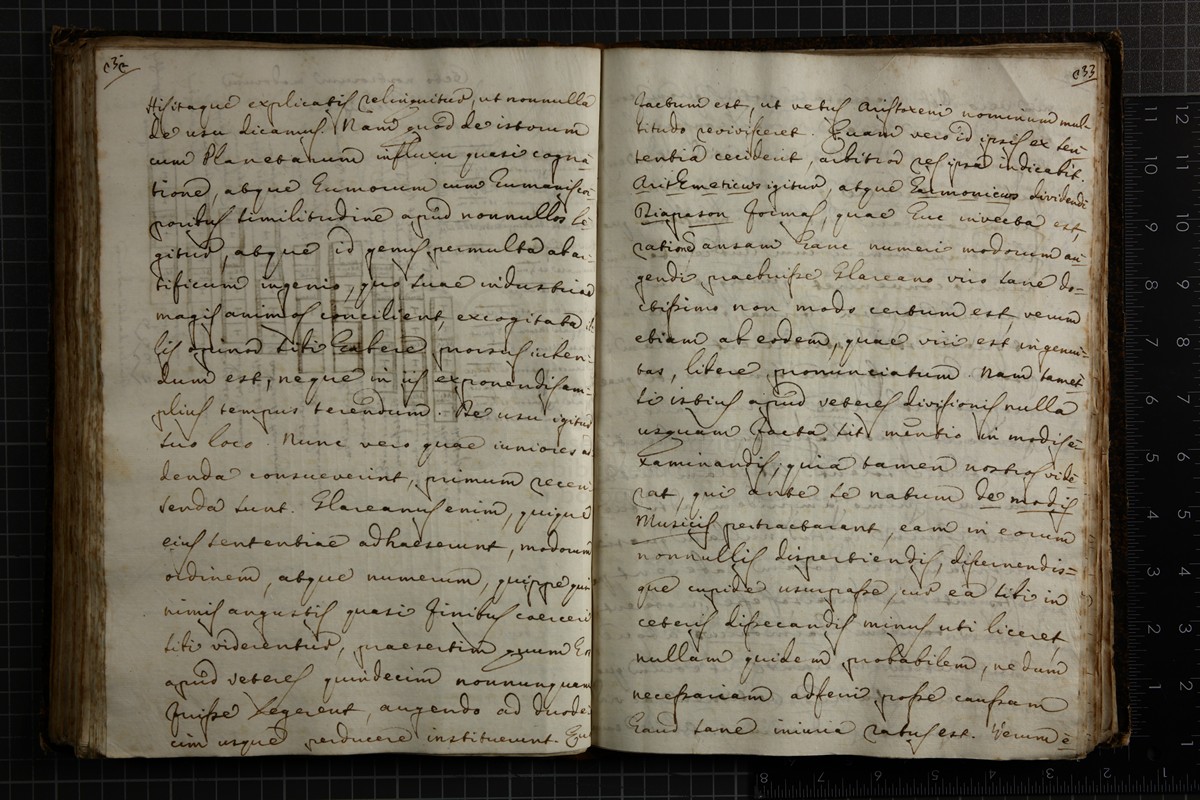 132
Hisitaque explicatis relinquitur, ut nonnulla
de usu dicamus. Nam quod de istorum
cum Planetarum influxu quasi cogna
tione, atque humorum cum humanis cor
poribus similitudine apud nonnullos le
gitur, atque id genus permulta ab ar
tificum ingenio, quo suae industriae
magis animos concilient, excogitata il
lis opinor sibi habere prorsus iuben
dum est, neque in iis exponendis am
plius tempus terendum. De usu igitur
suo loco. Nunc vero quae iuniores ad
denda consueverint, primum recen
senda sunt. Glareanus enim, quique
eius sententiae adhaeserunt, modorum
ordinem, atque numerum, quippe qui
nimis angustis quasi finibus coerceri
sibi viderentur, praesertim quum
apud veteres quindecim nonnunquam
fuisse legerent, augendo ad duode
cim usque perducere instituerunt.
133
factum est, ut vetus Aristoxeni nominum mul
titudo revivisceret. Quam vero id ipsis ex sen
tentia ceciderit, arbitror res ipsa indicabit.
Arithmeticus igitur, atque harmonicus dividendi
Diapason formas, quae huc invecta est,
ratione ansam hanc numeri modorum au
gendi praebuisse Glareano viro sane do-
ctissimo non modo certum est, verum
etiam ab eodem, quae viri est ingenui-
tas, libere pronunciatum. Nam tamet
si istius apud veteres divisionis nulla
usquam facta sit mentio in modis e-
xaminandis, quia tamen nostros vide-
rat, qui ante se natum de modis
Musicis pertractarant, eam in eorum
nonnullis dispertiendis, discernendis=
que cupide usurpasse, cur ea sibi in
ceteris dissecandis minus uti liceret,
nullam quidem probabilem, nedum
necessariam adferri posse caussam
haud sane iniuria ratus est. Verum e